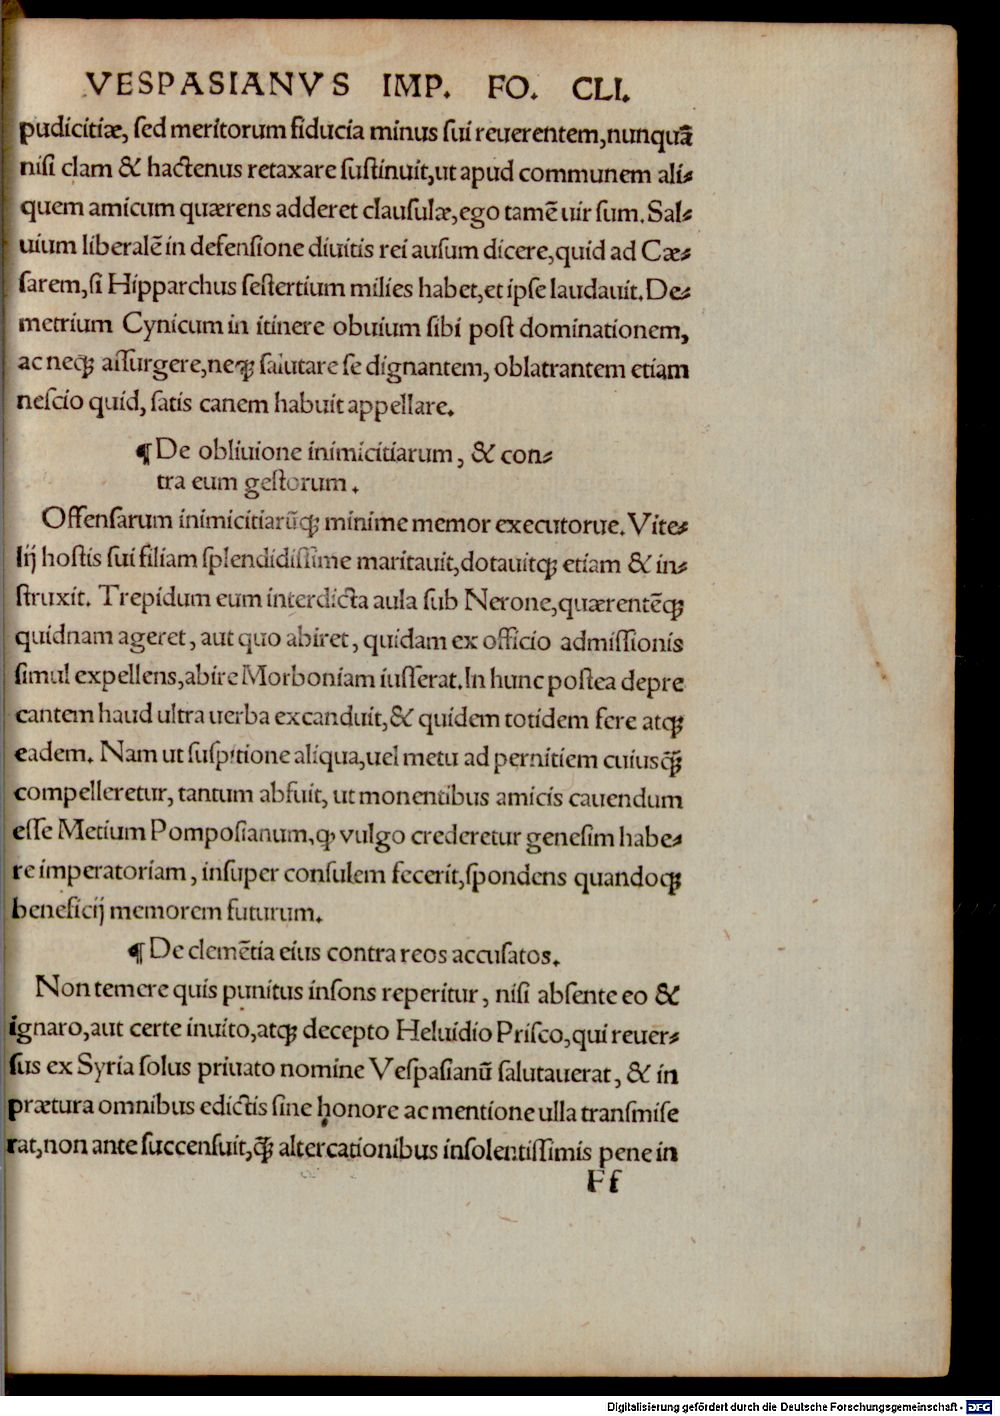 VESPASIANVS IMP. FO. CLI.
pudicitiæ, ſed meritorum fiducia minus ſui reuerentem, nunquã
niſi clam & hactenus retaxare ſuſtinuit, ut apud communem ali⸗
quem amicum quærens adderet clauſulæ, ego tamẽ uir ſum. Sal⸗
uium liberalẽ in defenſione diuitis rei auſum dicere, quid ad Cæ⸗
ſarem, ſi Hipparchus ſeſtertium milies habet, et ipſe laudauit. De⸗
metrium Cynicum in itinere obuium ſibi poſt dominationem,
ac neqꝫ aſſurgere, neqꝫ ſalutare ſe dignantem, oblatrantem etiam
neſcio quid, ſatis canem habuit appellare.
¶ De obliuione inimicitiarum, & con⸗
tra eum geſtorum.
Offenſarum inimicitiarũqꝫ minime memor executorue. Vite⸗
lij hoſtis ſui filiam ſplendidiſſime maritauit, dotauitqꝫ etiam & in⸗
ſtruxit. Trepidum eum interdicta aula ſub Nerone, quærentẽqꝫ
quidnam ageret, aut quo abiret, quidam ex officio admiſſionis
ſimul expellens, abire Morboniam iuſſerat. In hunc poſtea depre
cantem haud ultra uerba excanduit, & quidem totidem fere atqꝫ
eadem. Nam ut ſuſpitione aliqua, uel metu ad pernitiem cuiusq̃ꝫ
compelleretur, tantum abfuit, ut monentibus amicis cauendum
eſſe Metium Pompoſianum, ꝙ uulgo crederetur geneſim habe⸗
re imperatoriam, inſuper conſulem fecerit, ſpondens quandoqꝫ
beneficij memorem futurum.
¶ De clemẽtia eius contra reos accuſatos.
Non temere quis punitus inſons reperitur, niſi abſente eo &
ignaro, aut certe inuito, atqꝫ decepto Heluidio Priſco, qui reuer⸗
ſus ex Syria ſolus priuato nomine Veſpaſianũ ſalutauerat, & in
prætura omnibus edictis ſine honore ac mentione ulla transmiſe
rat, non ante ſuccenſuit, q̃ꝫ altercationibus inſolentiſſimis pene in
Ff
Digitalisierung gefördert durch die Deutsche Forschungsgemeinschaft - DFG